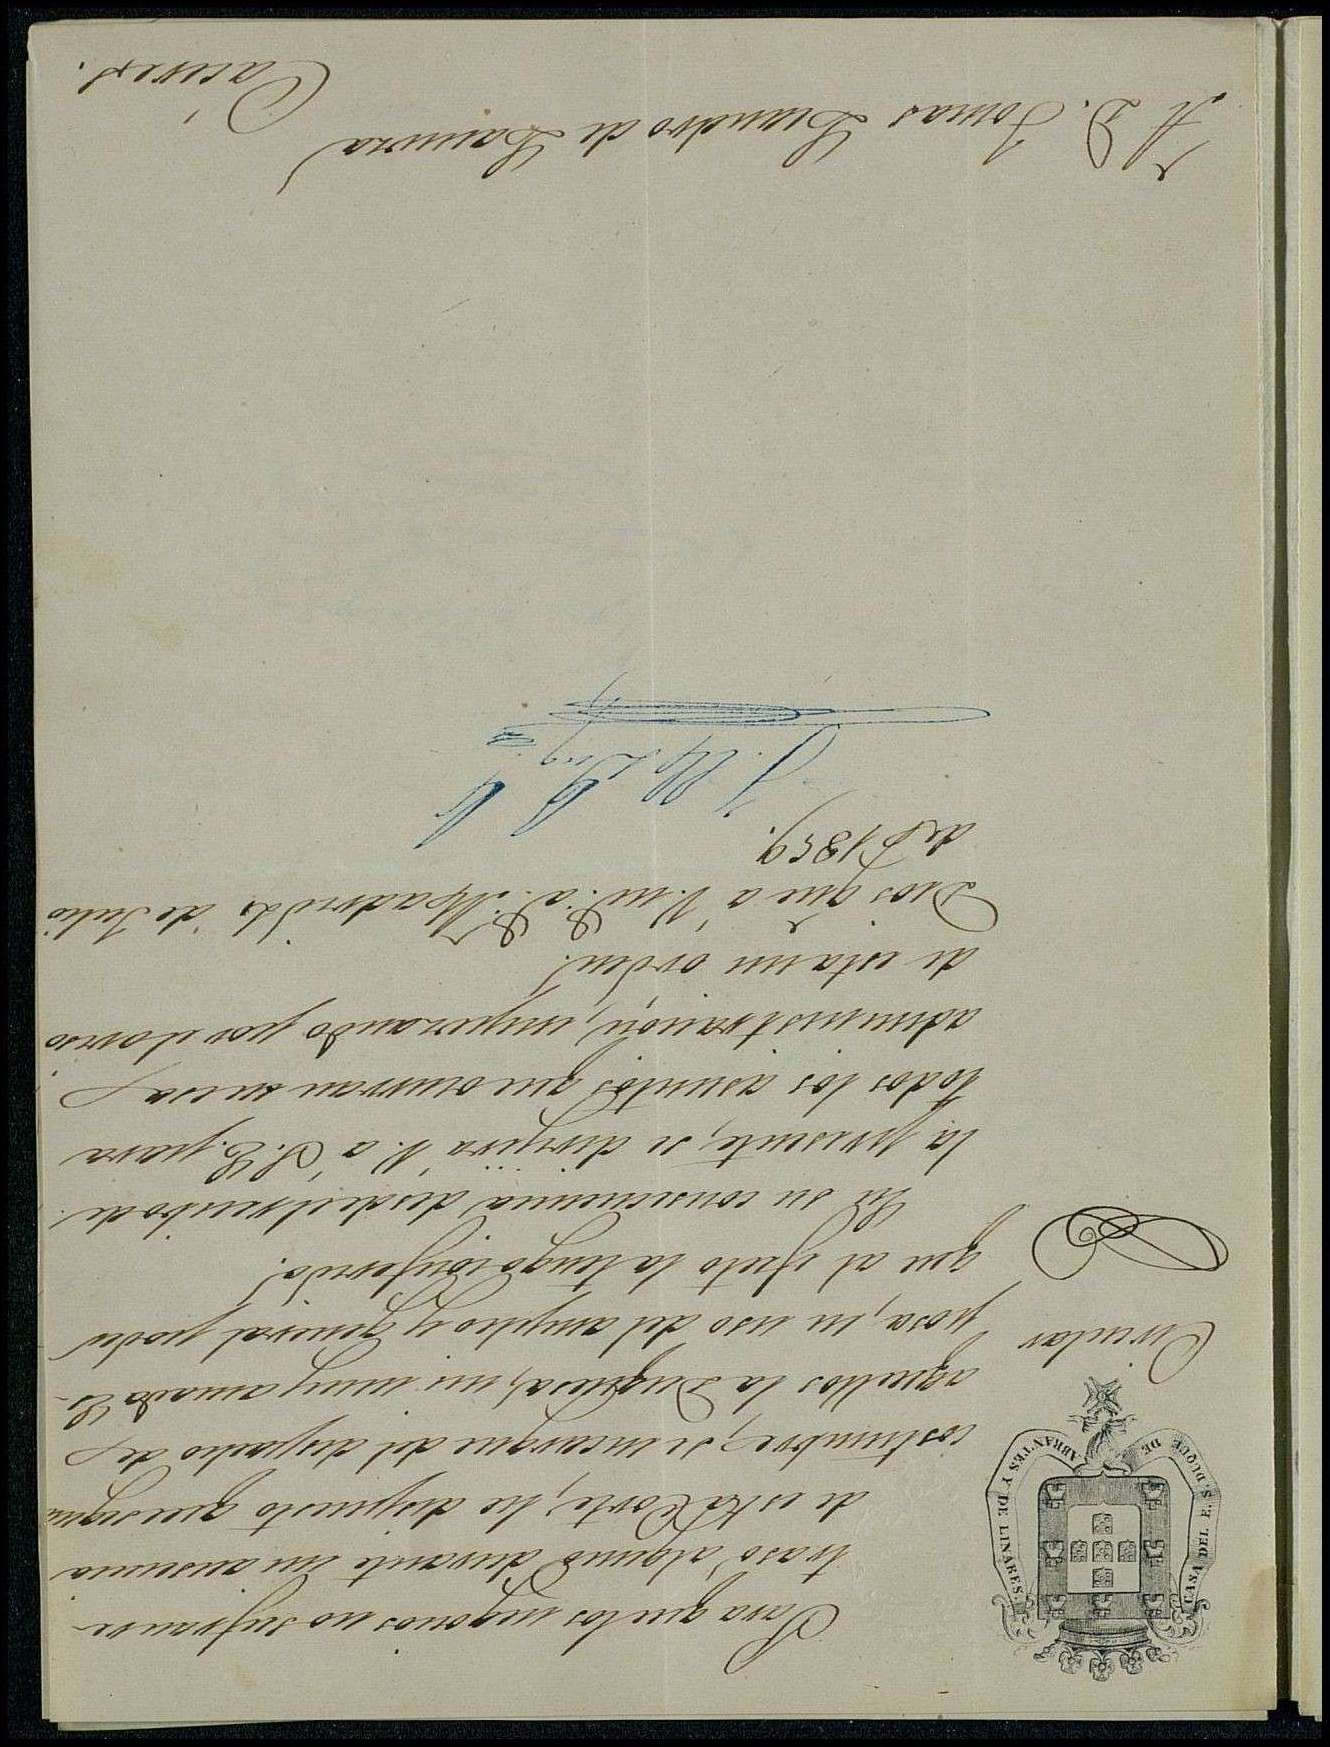 CASA DEL E. S. DUQUE DE ABRANTES Y DE LINARES.
Circular
Para que los negocios no sufran re-
traso alguno durante mi ausencia
de esta Corte, he dispuesto que segun
costumbre, se encargue del despacho de
aquellos la Duquesa, mi muy amada Es-
posa, en uso del amplio y general poder
que al efecto la tengo conferido.
En su consecuencia desde el recibo de
la presente, se dirijirá V. á S. E. para
todos los asuntos que ocurran en esa
administracion, empezando por el aviso
de esta mi orden.
Dios gue á V. m.s a.s Madrid de Julio
de 1859.
A D. Tomas Leandro de
Cáceres.